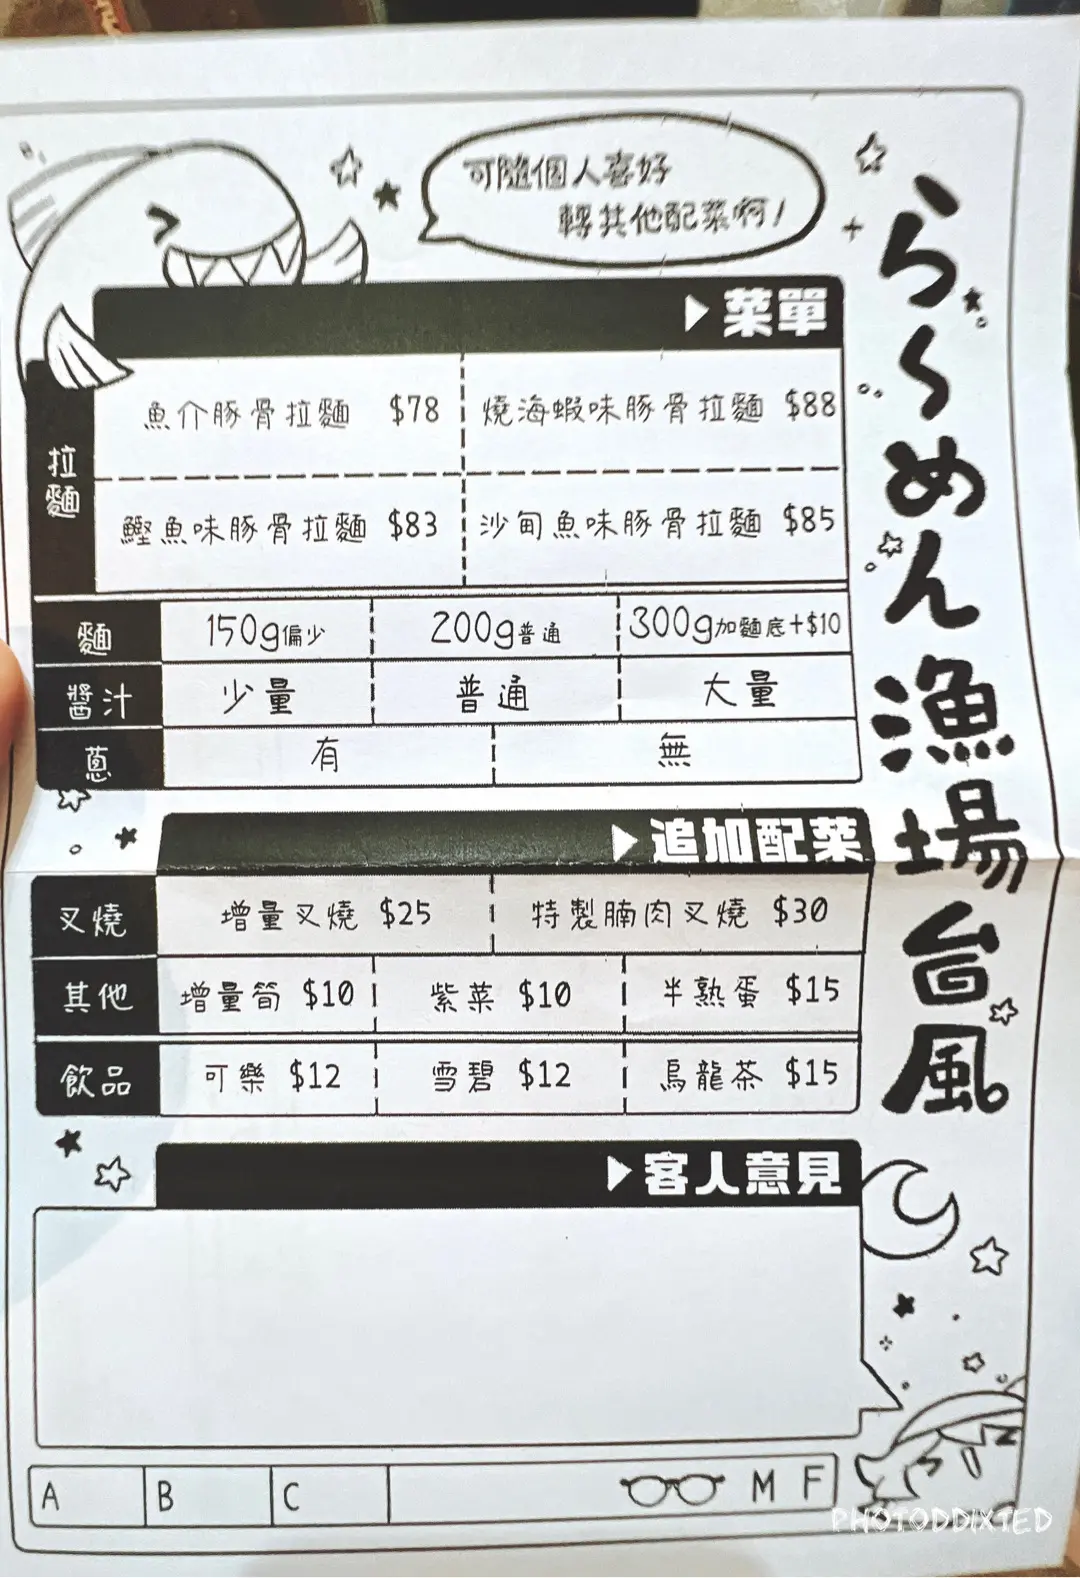 可隨個人喜好
轉其他配菜啊！
らーめん漁場台風
菜單
拉麵
魚介豚骨拉麵 $78
燒海蝦味豚骨拉麵 $88
鰹魚味豚骨拉麵 $83
沙甸魚味豚骨拉麵 $85
麵 150g偏少 200g普通 300g加麵底+$10
醬汁 少量 普通 大量
蔥 有 無
追加配菜
叉燒 增量叉燒 $25 特製腩肉叉燒 $30
其他 增量筍 $10 紫菜 $10 半熟蛋 $15
飲品 可樂 $12 雪碧 $12 烏龍茶 $15
客人意見
A B C M F
PHOTODDIXTED